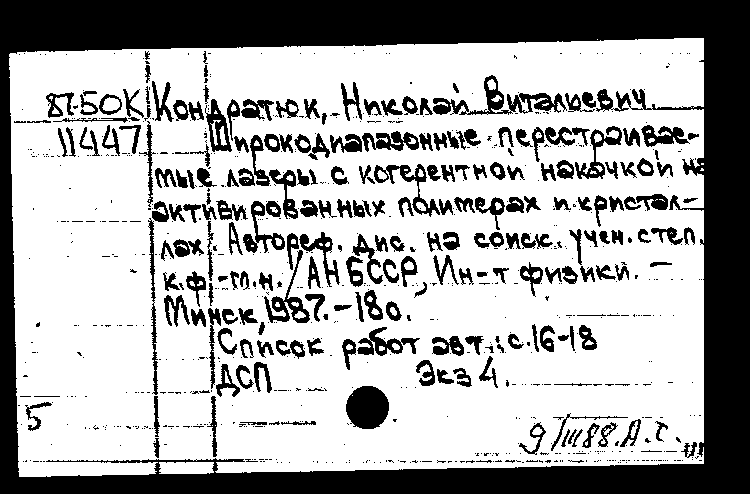 87-5OK Кондратюк, Николай Витальевич.
11447 Широкодиапазонные перестраивае-
мые лазеры с когерентной накачкой на
активированных полимерах и кристал-
лах. Автореф. дис. на соиск. учен. степ.
к.ф.-м.н. / АН БССР, Ин-т физики. —
Минск, 1987. - 18 с.
Список работ авт.: с. 16-18
ДСП Экз 4.
5
9/III 88. А.С.